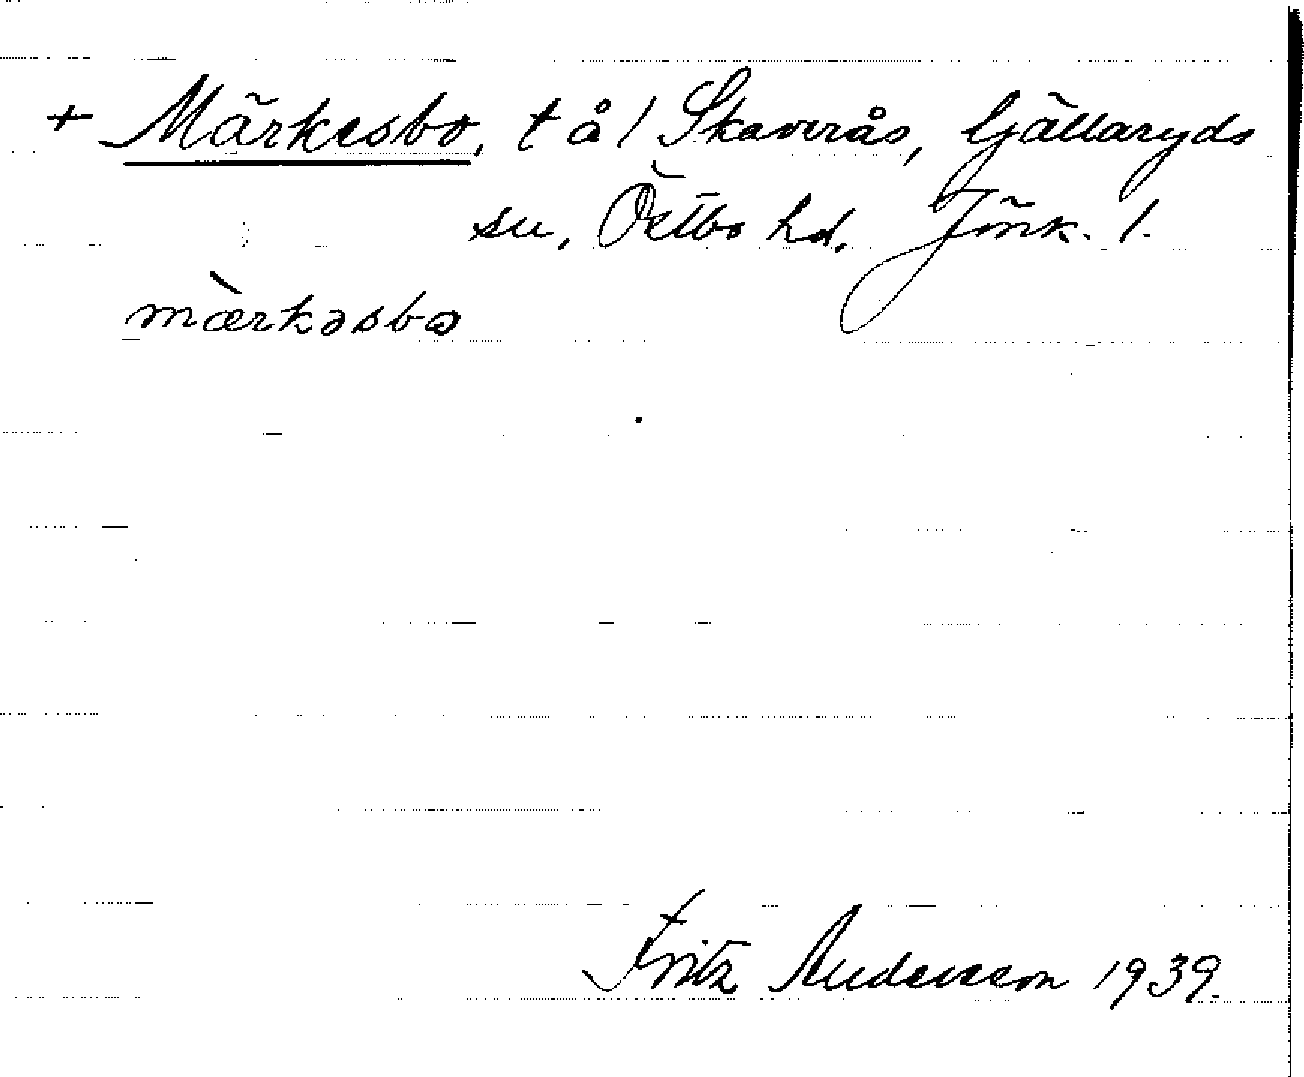 + Märkesbo, t å / Skaverås, Gällaryds
sn, Östbo hd. Jönk. l.
mæ̀rkəsbo
Fritz Andersson 1939.